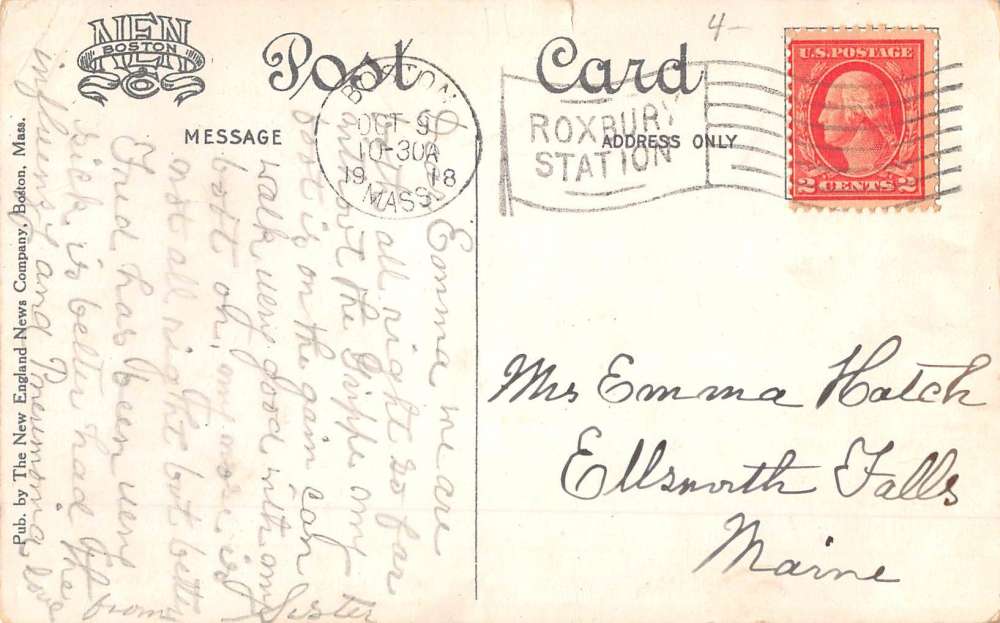 NEN
BOSTON
Post Card
4-
MESSAGE
ADDRESS ONLY
BOSTON
OCT 9
10-30A
1918
MASS.
ROXBURY
STATION
U.S. POSTAGE
2 CENTS 2
Pub. by The New England News Company, Boston, Mass.
Emma we are
all right so fare
not the Grippe my
boot is on the gain can
walk very good with one
boot on, my nose is
not all right but better
Frid has been very
sick, is better had the
influenzy and Pneumonia. love
from
Sister
Mrs Emma Hatch
Ellsworth Falls
Maine